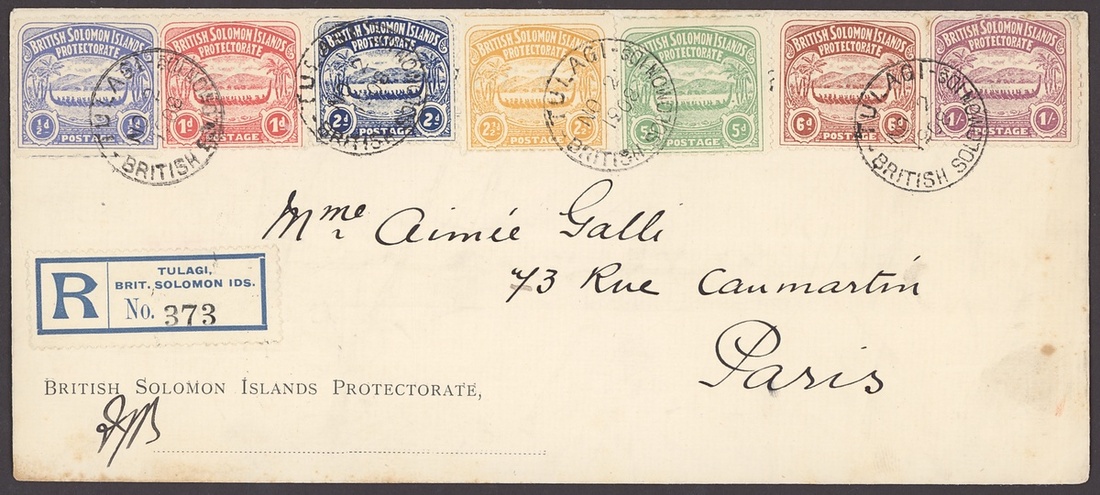 BRITISH SOLOMON ISLANDS
PROTECTORATE
½d ½d
POSTAGE
BRITISH SOLOMON ISLANDS
PROTECTORATE
1d 1d
POSTAGE
BRITISH SOLOMON ISLANDS
PROTECTORATE
2d 2d
POSTAGE
BRITISH SOLOMON ISLANDS
PROTECTORATE
2½d 2½
POSTAGE
BRITISH SOLOMON ISLANDS
PROTECTORATE
5d 5d
POSTAGE
BRITISH SOLOMON ISLANDS
PROTECTORATE
6d 6d
POSTAGE
BRITISH SOLOMON ISLANDS
PROTECTORATE
1/- 1/-
POSTAGE
TULAGI - SOLOMON
BRITISH
TULAGI - SOLOMON
BRITISH
TULAGI - SOLOMON
BRITISH SOL
Mme Aimée Galli
73 Rue Caumartin
Paris
R
TULAGI,
BRIT. SOLOMON IDS.
No. 373
BRITISH SOLOMON ISLANDS PROTECTORATE,